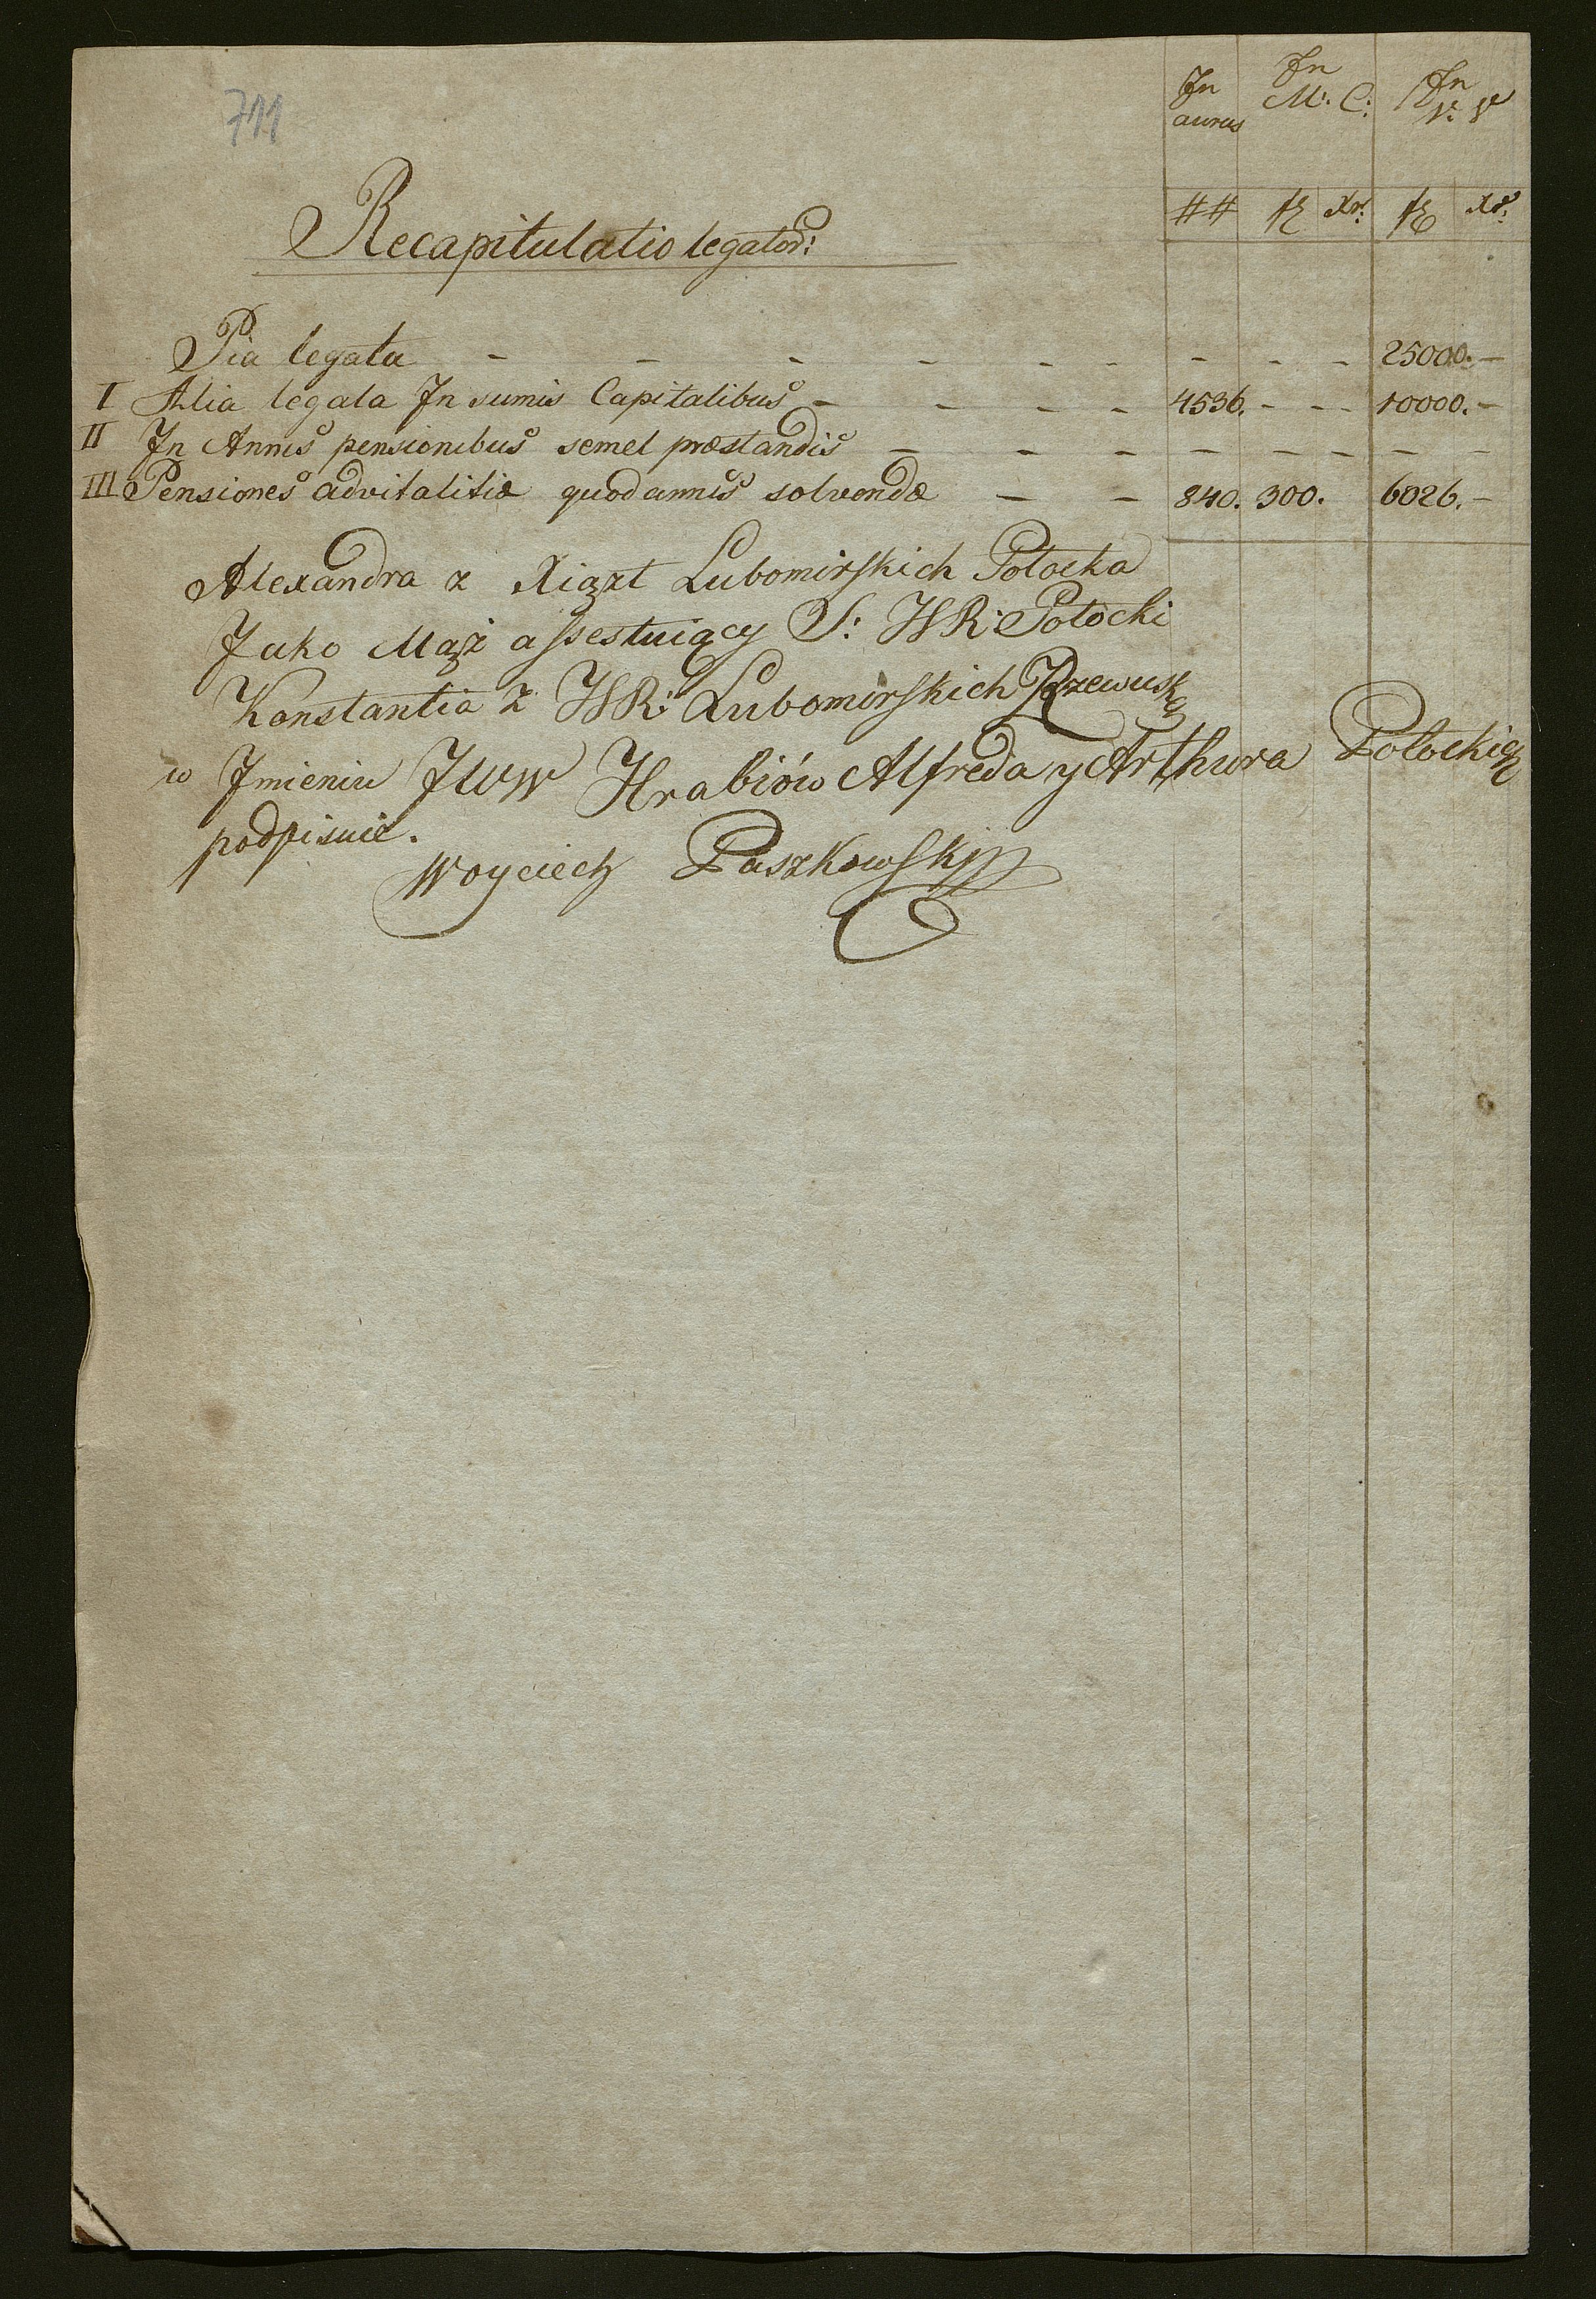 711
In aurus
In M: C:
In V: V
## fl Xr: fl Xr:
Recapitulatio legator:
Pia legata - - - - - - - - - 25000.-
I Alia legata In sumis Capitalibus - - - - 4536. - - - 10000.-
II In Annis pensionibus semel præstandis - - - - - - - - -
III Pensiones advitalitiæ quodannis solvendæ - - 840. 300. 6026.-
Alexandra z Xiążt Lubomirskich Potocka
Jako Mąż assestuiący S: HR: Potocki
Konstantia z HR: Lubomirskich Rzewuska
w Jmieniu JWW Hrabiów Alfreda y Arthura Potockich
podpisuie.
Woyciech Paszkowski